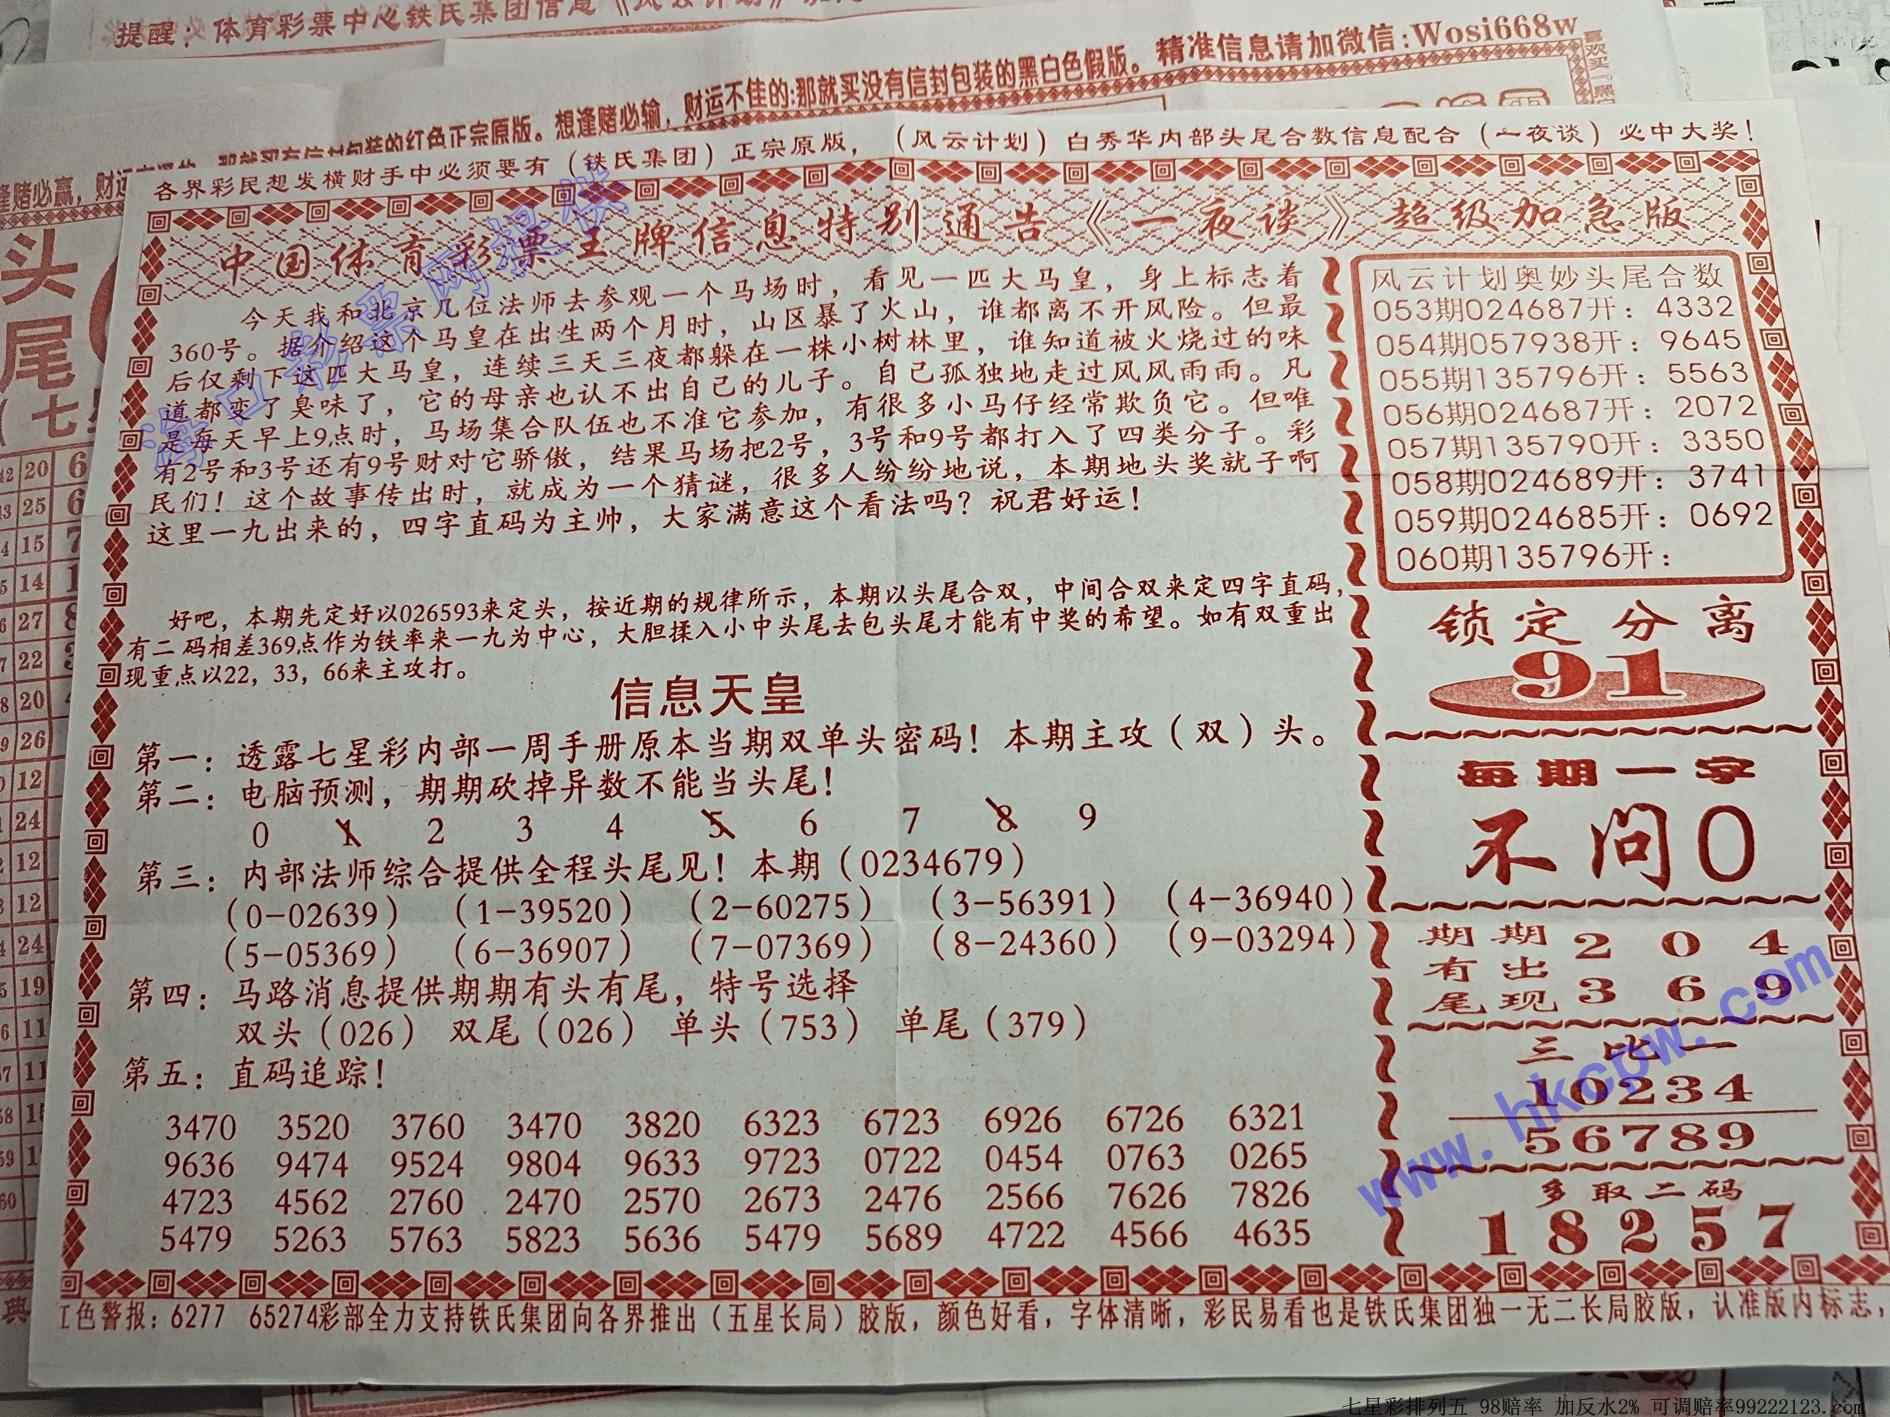 提醒：体育彩票中心铁氏集团信息《风云计划》
那就买有信封包装的红色正宗原版。想逢赌必输，财运不佳的:那就买没有信封包装的黑白色假版。精准信息请加微信:Wosi668w
各界彩民想发横财手中必须要有（铁氏集团）正宗原版，（风云计划）白秀华内部头尾合数信息配合（一夜谈）必中大奖！
中国体育彩票王牌信息特别通告《一夜谈》超级加急版
今天我和北京几位法师去参观一个马场时，看见一匹大马皇，身上标志着
360号。据介绍这个马皇在出生两个月时，山区暴了火山，谁都离不开风险。但最
后仅剩下这匹大马皇，连续三天三夜都躲在一株小树林里，谁知道被火烧过的味
道都变了臭味了，它的母亲也认不出自己的儿子。自己孤独地走过风风雨雨。凡
是每天早上9点时，马场集合队伍也不准它参加，有很多小马仔经常欺负它。但唯
有2号和3号还有9号财对它骄傲，结果马场把2号，3号和9号都打入了四类分子。彩
民们！这个故事传出时，就成为一个猜谜，很多人纷纷地说，本期地头奖就子啊
这里一九出来的，四字直码为主帅，大家满意这个看法吗？祝君好运！
好吧，本期先定好以026593来定头，按近期的规律所示，本期以头尾合双，中间合双来定四字直码，
有二码相差369点作为铁率来一九为中心，大胆揉入小中头尾去包头尾才能有中奖的希望。如有双重出
现重点以22，33，66来主攻打。
信息天皇
第一：透露七星彩内部一周手册原本当期双单头密码！本期主攻（双）头。
第二：电脑预测，期期砍掉异数不能当头尾！
0 1 2 3 4 5 6 7 8 9
第三：内部法师综合提供全程头尾见！本期（0234679）
（0-02639）（1-39520）（2-60275）（3-56391）（4-36940）
（5-05369）（6-36907）（7-07369）（8-24360）（9-03294）
第四：马路消息提供期期有头有尾，特号选择
双头（026） 双尾（026） 单头（753） 单尾（379）
第五：直码追踪！
3470 3520 3760 3470 3820 6323 6723 6926 6726 6321
9636 9474 9524 9804 9633 9723 0722 0454 0763 0265
4723 4562 2760 2470 2570 2673 2476 2566 7626 7826
5479 5263 5763 5823 5636 5479 5689 4722 4566 4635
风云计划奥妙头尾合数
053期024687开：4332
054期057938开：9645
055期135796开：5563
056期024687开：2072
057期135790开：3350
058期024689开：3741
059期024685开：0692
060期135796开：
锁定分离
91
每期一字
不问0
期期 2 0 4
有出
尾现 3 6 9
三比一
10234
56789
多取二码
18257
红色警报：6277 65274彩部全力支持铁氏集团向各界推出（五星长局）胶版，颜色好看，字体清晰，彩民易看也是铁氏集团独一无二长局胶版，认准版内标志，
海口彩票网提供
www.hkcpw.com
七星彩排列五 98赔率 加反水2% 可调赔率99222123.com
头
尾
（七星